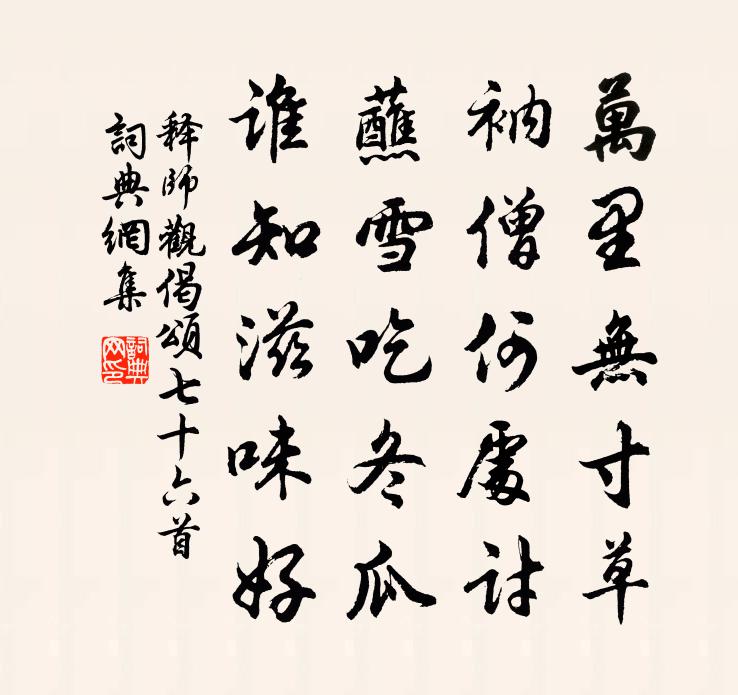 萬里無寸草
衲僧何處討
蘸雪吃冬瓜
誰知滋味好
释師觀偈頌七十六首
詞典網集
詞典網印